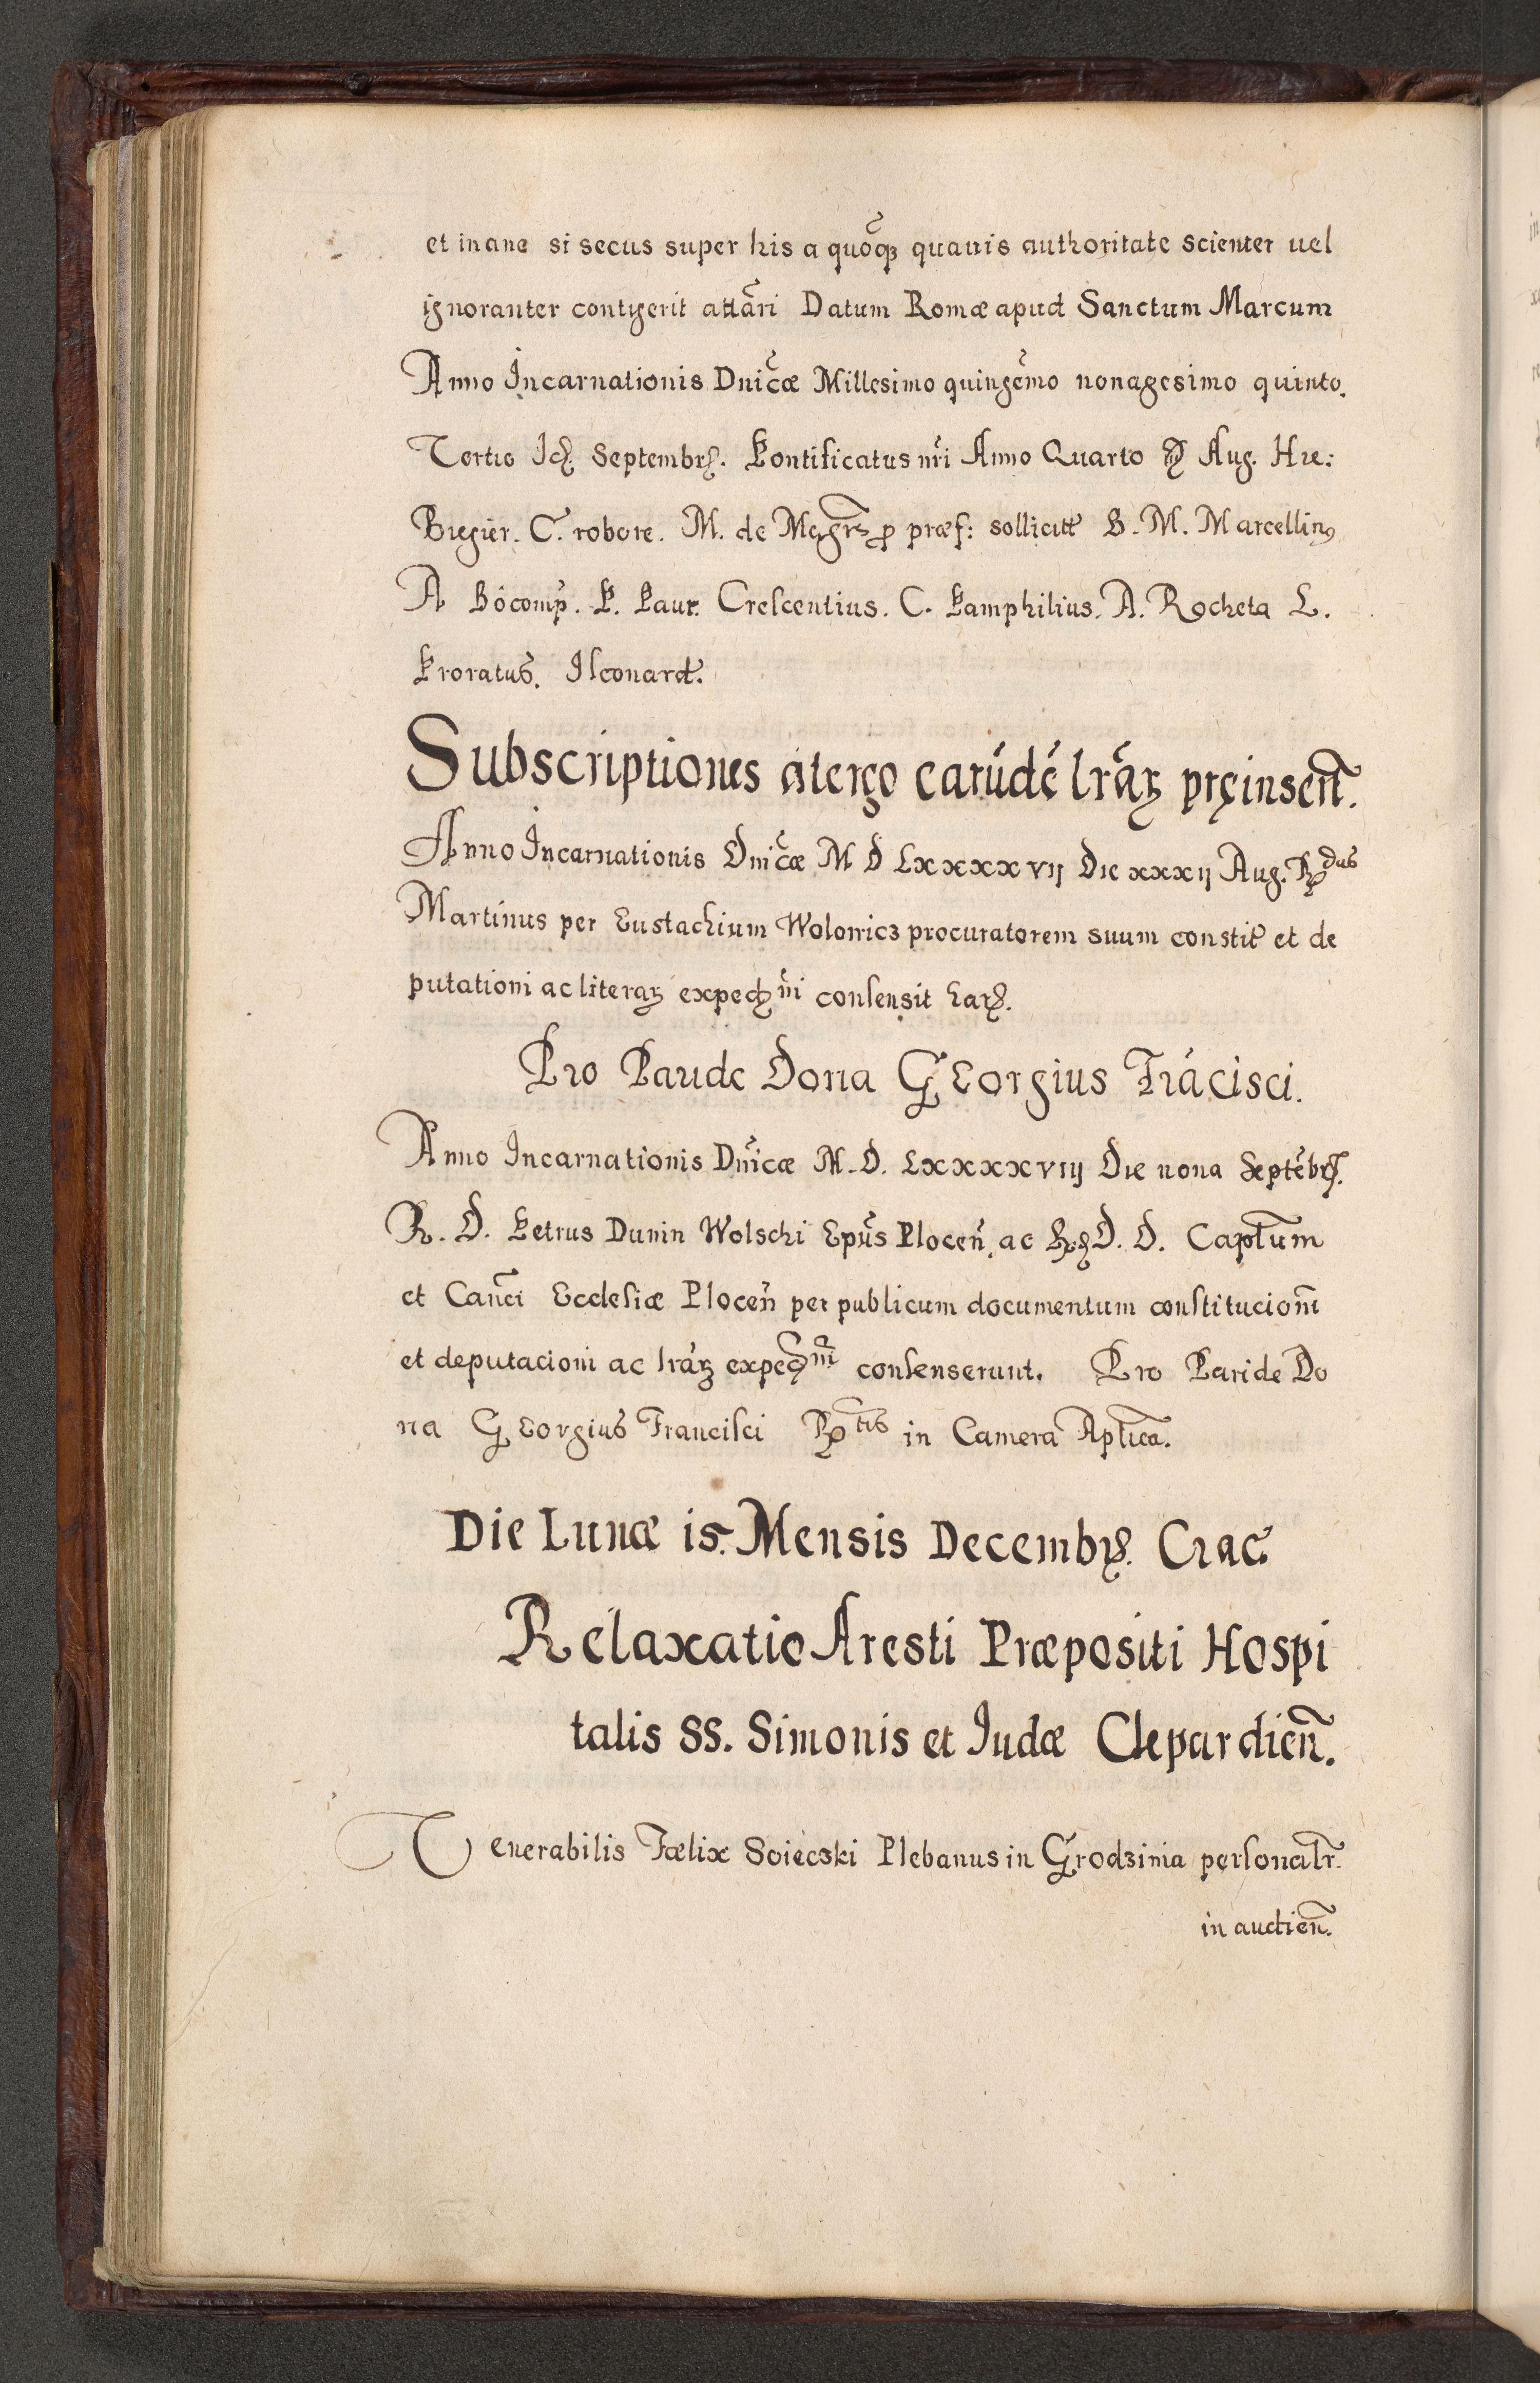 et inane si secus super his a quõq; quauis authoritate scienter uel
ignoranter contigerit attãri Datum Romæ apud Sanctum Marcum
Anno Incarnationis Dnĩcæ Millesimo quingẽmo nonagesimo quinto.
Tertio Id. Septembrꝭ. Pontificatus nr̃i Anno Quarto Aug. Hie:
Bregier. C. robore. M. de præf: sollicitt B. M. Marcellinꝯ
A Bõcomp̃. P. Paur. Crescentius. C. Pamphilius. A. Rocheta L.
Proratus. Ileonard.
Subscriptiones atergo earũdẽ lrãꝝ pręinsert̃.
Anno Incarnationis Dnĩcæ M D Lxxxxvij Die xxxij Aug. R^dus
Martinus per Eustachium Wolowicz procuratorem suum constit̃ et de
putationi ac literaꝝ exped^ni consensit
Pro Paude Dona Georgius Frãcisci.
Anno Incarnationis Dnĩcæ M. D. Lxxxxviij Die nona Septẽbrꝭ.
R. D. Petrus Dunin Wolschi Epũs Plocen̄, ac D. D. Captũm
et Canci Ecclesiæ Plocen̄ per publicum documentum constitucioni
et deputacioni ac lrãꝝ exped^ni consenserunt. Pro Paride Do
na Georgius Francisci R^tis in Camera Aplĩca.
Die Lunæ 15. Mensis Decembrꝭ. Crac.
Relaxatio Aresti Præpositi Hospi
talis SS. Simonis et Judæ Clepardien̄.
Venerabilis Fælix Soiecski Plebanus in Grodzinia personalr̃.
in audien̄.